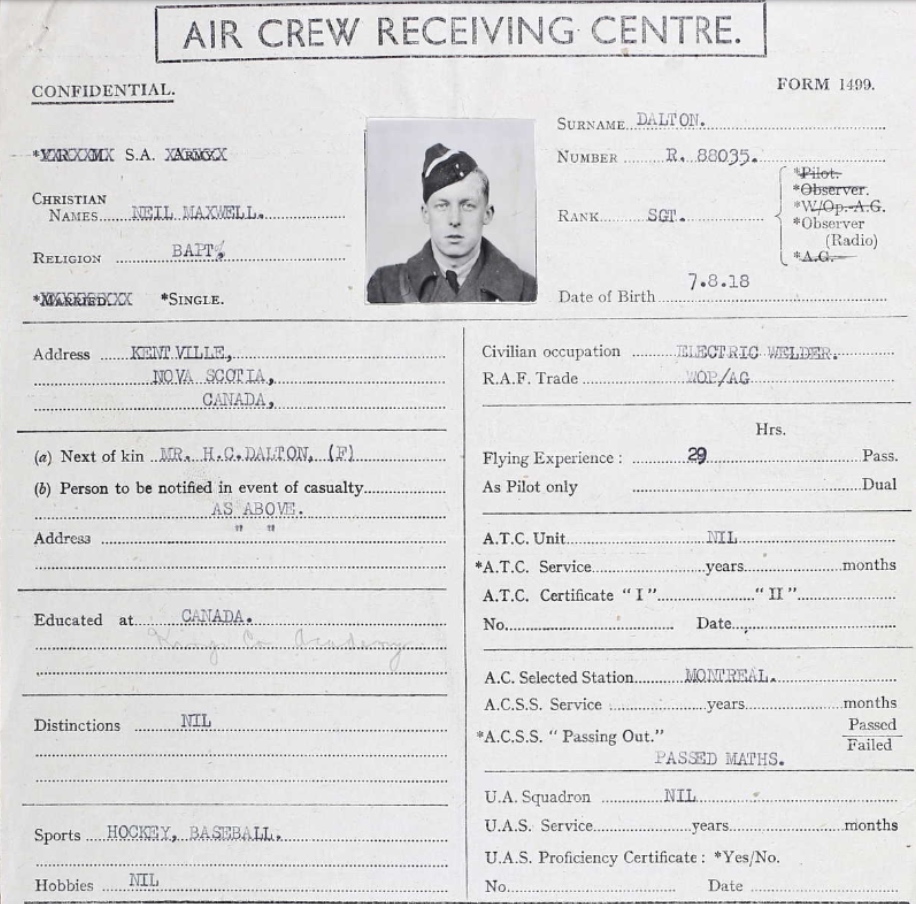 AIR CREW RECEIVING CENTRE.
CONFIDENTIAL.
FORM 1499.
S.A.
CHRISTIAN NAMES NEIL MAXWELL.
RELIGION BAPT.
*MARRIED. *SINGLE.
SURNAME DALTON.
NUMBER R. 88035.
RANK SGT.
*Pilot.
*Observer.
*W/Op.-A.G.
*Observer
(Radio)
*A.G.
Date of Birth 7.8.18
Address KENTVILLE,
NOVA SCOTIA,
CANADA,
(a) Next of kin MR. H.C.DALTON, (F)
(b) Person to be notified in event of casualty
AS ABOVE.
Address " "
Educated at CANADA.
Kings Co. Academy
Distinctions NIL
Sports HOCKEY, BASEBALL.
Hobbies NIL
Civilian occupation ELECTRIC WELDER.
R.A.F. Trade WOP/AG
Hrs.
Flying Experience : 29 Pass.
As Pilot only Dual
A.T.C. Unit NIL
*A.T.C. Service years months
A.T.C. Certificate "I" "II"
No. Date
A.C. Selected Station MONTREAL.
A.C.S.S. Service years months
*A.C.S.S. "Passing Out." Passed
Failed
PASSED MATHS.
U.A. Squadron NIL
U.A.S. Service years months
U.A.S. Proficiency Certificate : *Yes/No.
No. Date